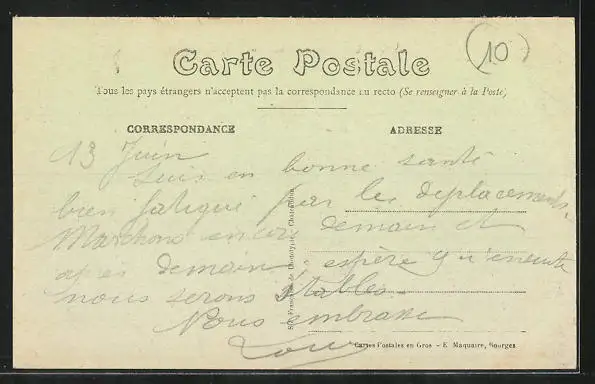 10
Carte Postale
Tous les pays étrangers n'acceptent pas la correspondance au recto (Se renseigner à la Poste)
CORRESPONDANCE
ADRESSE
13 Juin
Suis en bonne santé
bien fatigué par les déplacements.
Marchons encore demain et
après demain, espère qu'ensuite
nous serons stables.
Vous embrasse
Louis
Cartes Postales en Gros - E. Maquaire, Bourges